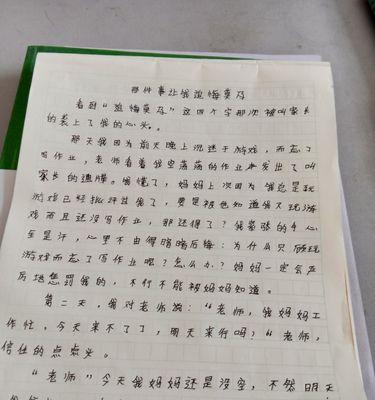 那件事让我追悔莫及
看到“追悔莫及”这四个字那次被叫家长
的袭上了我的心头。
那天我因为前天晚上沉迷于游戏，而忘了
写作业，老师看着我空荡荡的作业本发出了叫
家长的遭嘩。我慌了，妈妈上次因为我总是玩
游戏已经批评过我了，要是被她知道我又玩游
戏而且还没写作业，那还得了？我紧张的手心
里是汗，心里不由得暗暗后悔：为什么只顾玩
游戏而忘了写作业呢？怎么办？妈妈一定会严
厉地惩罚我的，不行不能被妈妈知道。
第二天，我对老师说：“老师，我妈妈工
作忙，今天来不了了，明天来行吗？”老师，
信任的点点头。
“老师”今天我妈妈还是没空，不然明天